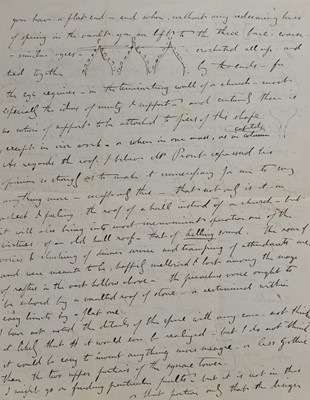 you have a flat end - and when, without any redeeming lines
of spring in the vault you are left to the three bare - worn
- similar ogees - crocketed all up and
tied together by the ends - for
the eye requires - in the terminating wall of a church - most
especially the ideas of unity & support - and certainly there is
no notion of support to be attached to piers of this shape
except in iron work - or when in one mass, as in column
As regards the roof, I believe Mr Prout expressed his
opinion so strongly as to make it unnecessary for me to say
anything more - excepting this - that not only is it in
aspect & feeling the roof of a hall instead of a church - but
it will also bring into most inconvenient operation one of the
virtues of an old hall roof - that of killing sound. The noise of
voices & clinking of dinner service and tramping of attendants are
and were meants to be, happily mellowed & lost among the maze
of rafters in the vast hollow above - the preachers voice ought to
be echoed by a vaulted roof of stone - or restrained within
easy limits by a flat one.
I have not noted the details of the spire with any care - not thinking
it likely that it would ever be realized - but I do not think
it would be easy to invent anything more meagre - or less Gothic
than the two upper portions of the square tower.
I might go on finding particular faults - but it is not in this
or that portion only that the